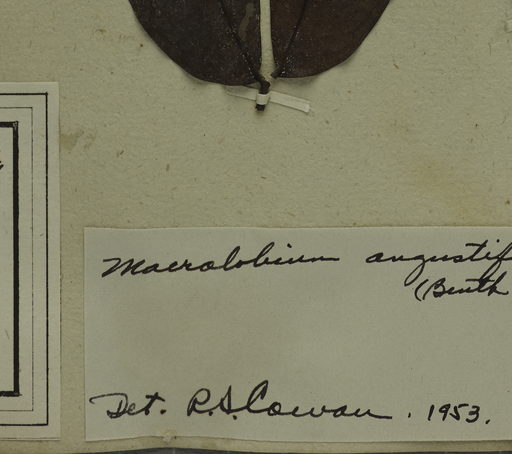 Macrolobium angustif
(Benth
Det. R.S. Cowan. 1953.